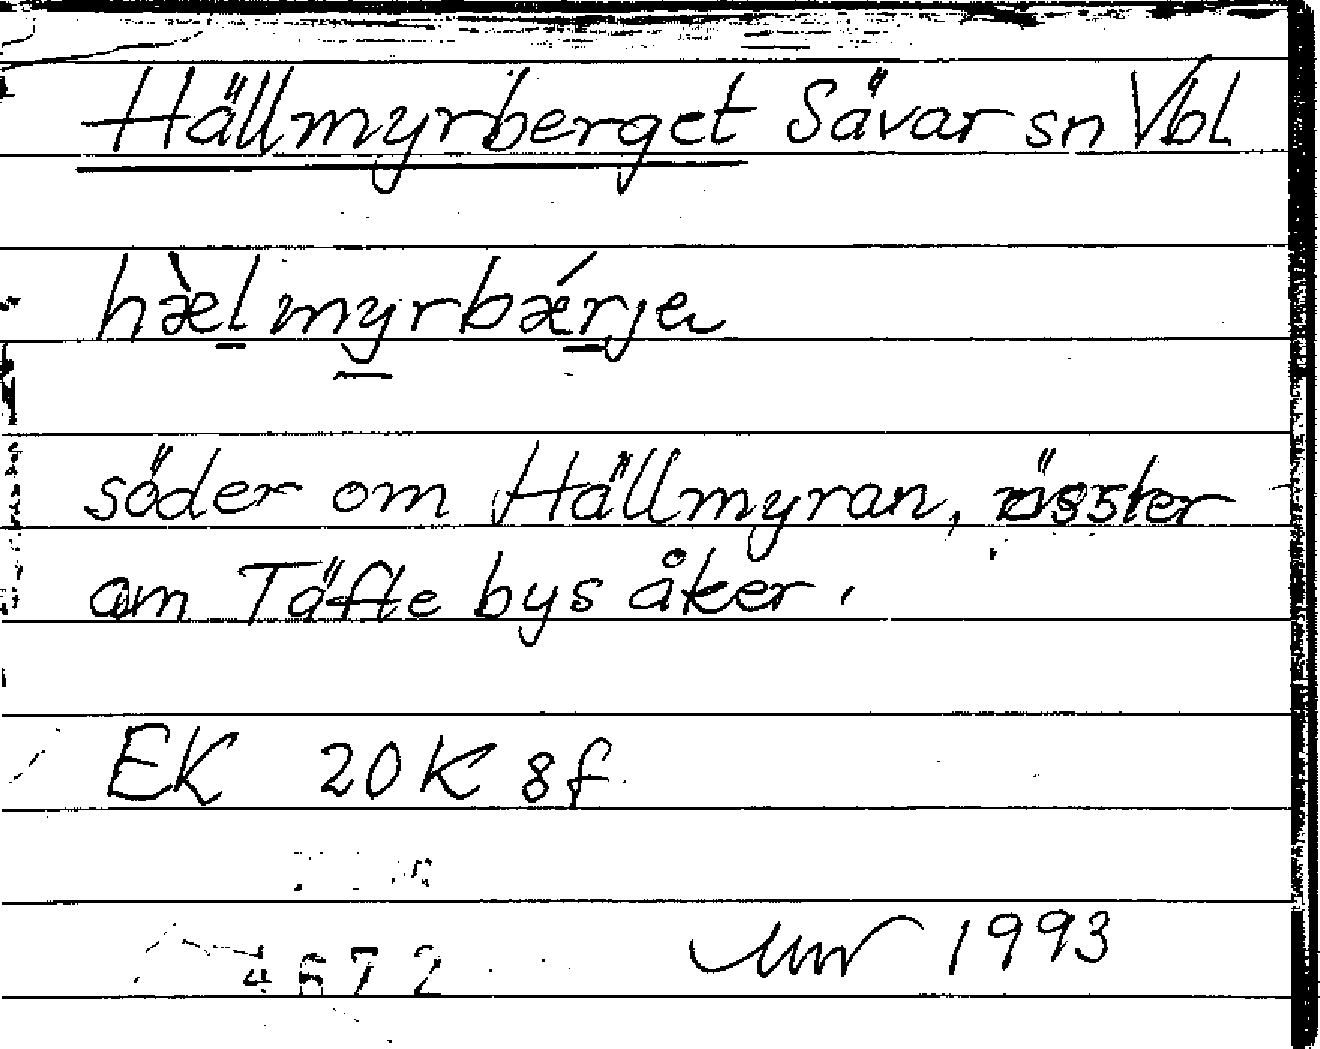 Hällmyrberget Sävar sn Vbl
hæ̀l̲my̲rbǽr̲je
söder om Hällmyran, öster
om Täfte bys åker.
EK 20K 8f
4672
1993